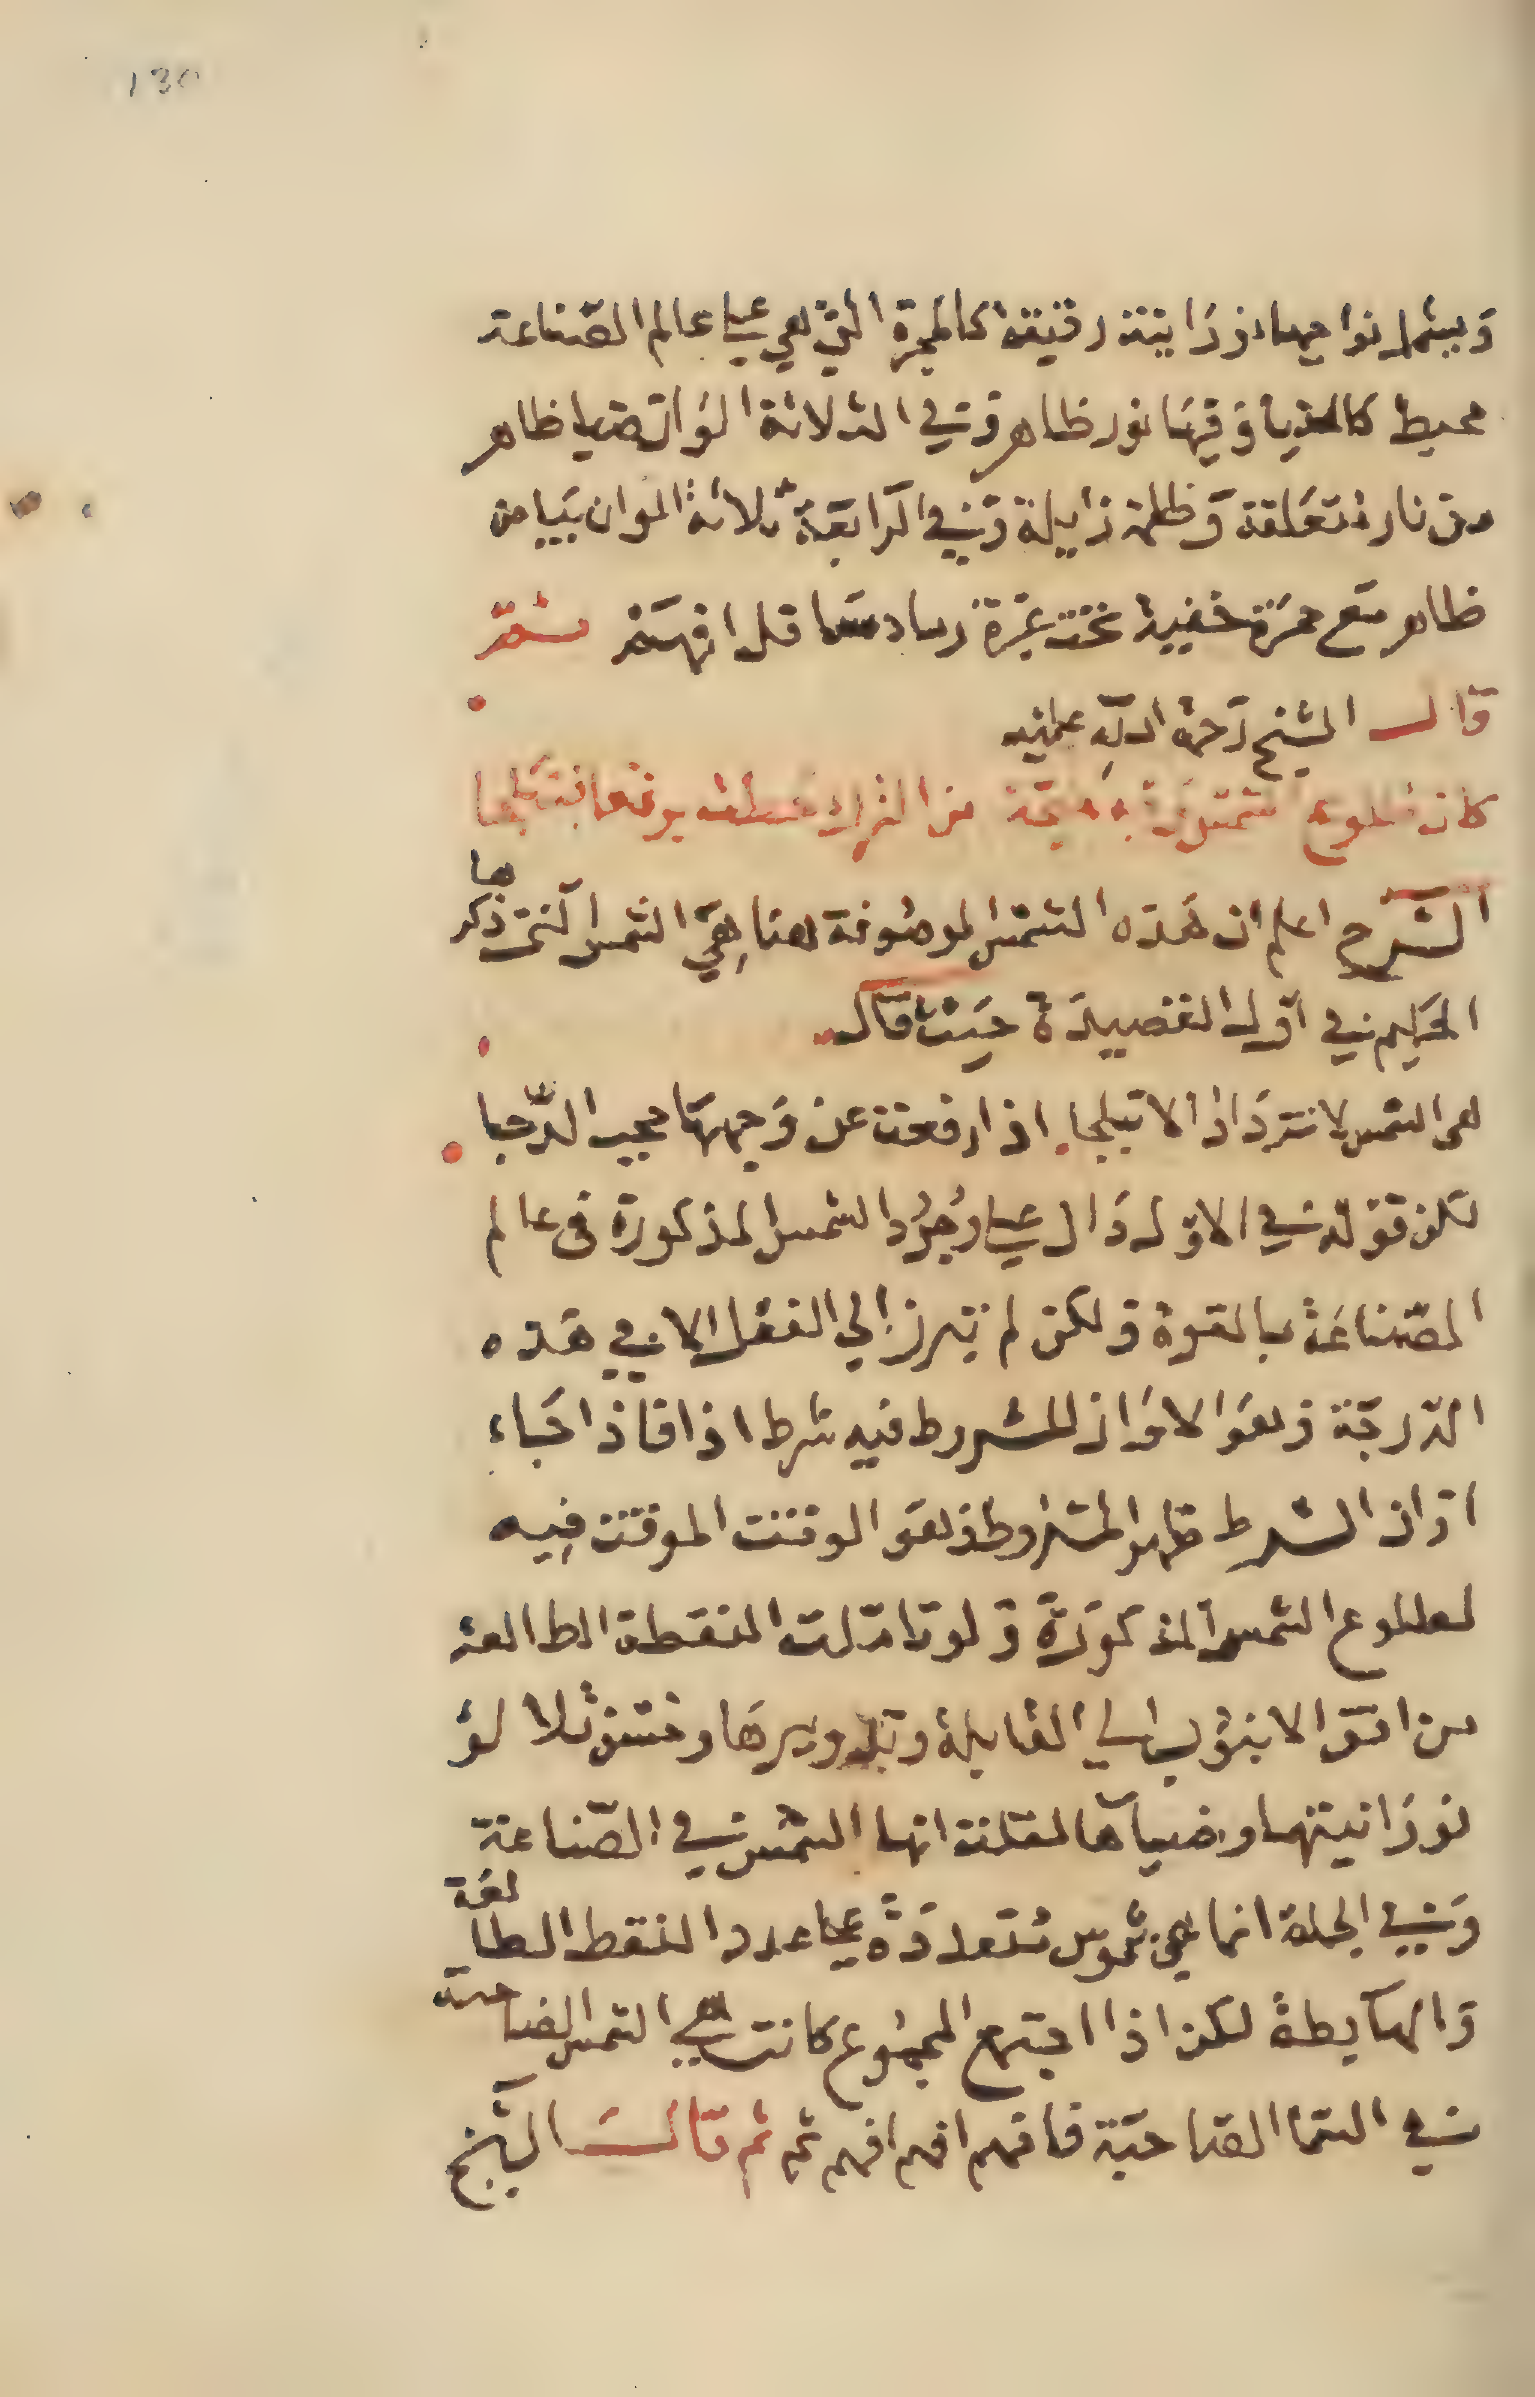 130
وبشمل نواحيها ذوايب رقيقة كالمجرة التي هي على عالم الصناعة
محيط كالضيا وفيها نور ظاهر وفي الثلاثة الوان ضيا ظاهر
من نار متعلقة وظلمة زايلة وفي الرابعة ثلاثة الوان بياض
ظاهر مع حمرة خفية تحت غبرة افهم ثم
قال الشيخ رحمة الله عليه
كان طلوع الشمس من
الشرح اعلم ان هذه الشمس الموصوفة هنا هي الشمس التي ذكرها
الحكيم في اول القصيدة حيث قال
هي الشمس لا تزداد الا تبلجا اذا رفعت عن وجهها حجب الدجا
لكن قوله في الاول دال على وجود الشمس المذكورة في عالم
الصناعة بالقوة ولكن لم تبرز الي الفعل الا في هذه
الدرجة وهو الاوان المشروط فيه شرط اذا فاذا جاء
اوان الشرط ظهر المشروط وهو الوقت الموقت فيه
لطلوع الشمس المذكورة ولو تاملت النقطة الطالعة
من افق الانبوب الي القابلة وتدويرها وحسن تلالؤ
نورانيتها وضياها لقلت انها الشمس في الصناعة
وفي الجملة انما هي شموس متعددة على عدد النقط الطالعة
والهابطة لكن اذا اجتمع المجموع كانت هي الشمس الضاحية
في السما الضاحية فافهم افهم افهم ثم ثم قال الشيخ